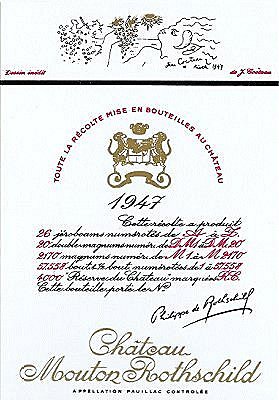 Jean Cocteau
1947
Dessin inédit
de J. Cocteau
TOUTE LA RÉCOLTE MISE EN BOUTEILLES AU CHÂTEAU
1947
Cette récolte a produit
26 jéroboams numérotés de A à Z
20 double magnums numér. de DM1 à DM20
2170 magnums numér. de M1 à M2170
57.558 bout. & ½ bout. numérotées de 1 à 57.558
4000 "Réserve du Château" marquées R.C.
Cette bouteille porte le No
Philippe de Rothschild
Château
Mouton Rothschild
APPELLATION PAUILLAC CONTRÔLÉE